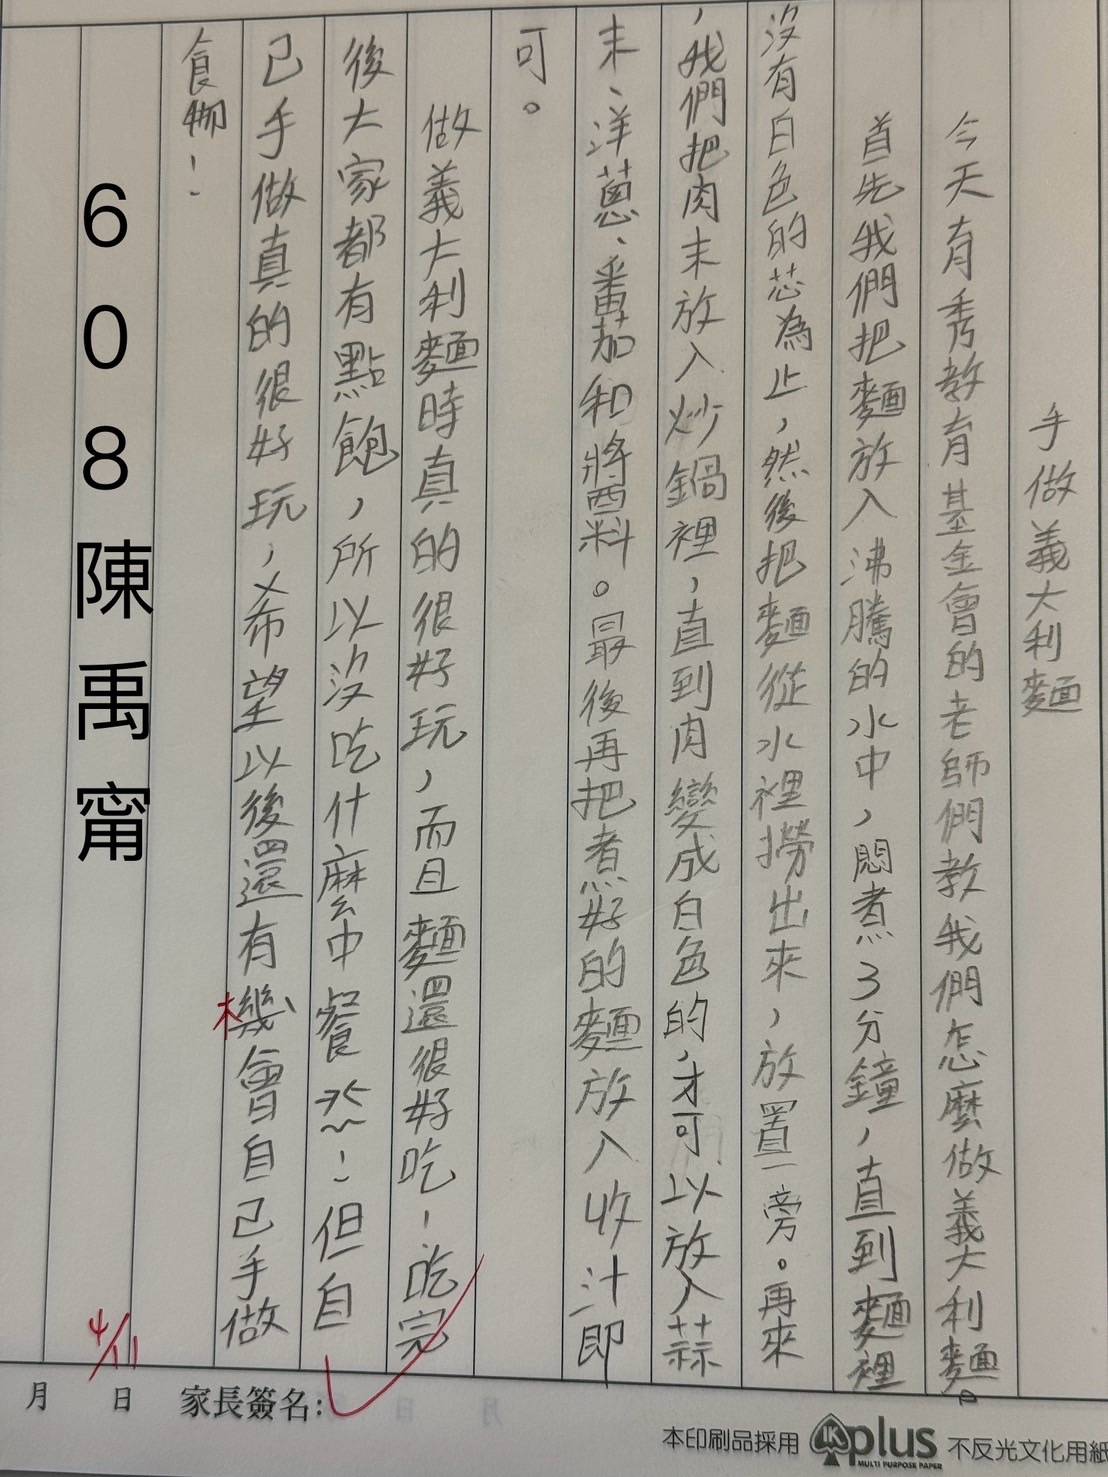 手做義大利麵
今天有秀教育基金會的老師們教我們怎麼做義大利麵。
首先我們把麵放入沸騰的水中，悶煮3分鐘，直到麵裡
沒有白色的芯為止，然後把麵從水裡撈出來，放置一旁。再來
，我們把肉末放入炒鍋裡，直到肉變成白色的，才可以放入蒜
末、洋蔥、番茄和將醬料。最後再把煮好的麵放入收汁即
可。
做義大利麵時真的很好玩，而且麵還很好吃！吃完
後大家都有點飽，所以沒吃什麼中餐ㄌㄟ～！但自
己手做真的很好玩，希望以後還有機會自己手做
食物！
木
608陳禹甯
4/11
月 日 家長簽名：
本印刷品採用 IKplus MULTI PURPOSE PAPER 不反光文化用紙